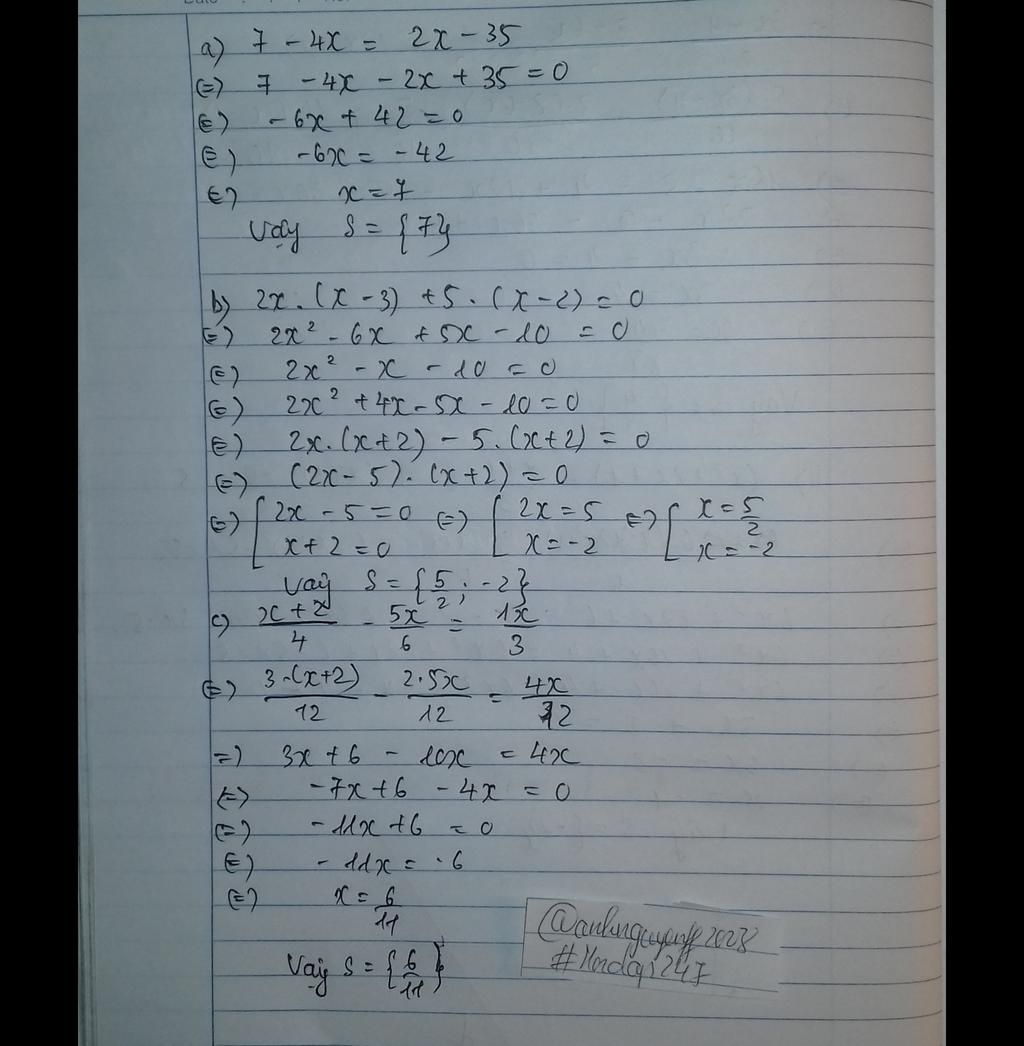 a) 7 - 4x = 2x - 35
(=) 7 - 4x - 2x + 35 = 0
(=) - 6x + 42 = 0
(=) -6x = -42
(=) x = 7
Vậy S = {7}
b) 2x.(x - 3) + 5.(x - 2) = 0
(=) 2x² - 6x + 5x - 10 = 0
(=) 2x² - x - 10 = 0
(=) 2x² + 4x - 5x - 10 = 0
(=) 2x.(x+2) - 5.(x+2) = 0
(=) (2x - 5).(x+2) = 0
(=) [2x - 5 = 0 (=) [2x = 5 (=) [x = 5/2
x + 2 = 0 x = -2 x = -2
Vậy S = {5/2; -2}
c) (x + 2)/4 - 5x/6 = 1x/3
(=) 3.(x+2)/12 - 2.5x/12 = 4x/12
=) 3x + 6 - 10x = 4x
(=) -7x + 6 - 4x = 0
(=) -11x + 6 = 0
(=) -11x = -6
(=) x = 6/11
Vậy S = {6/11}